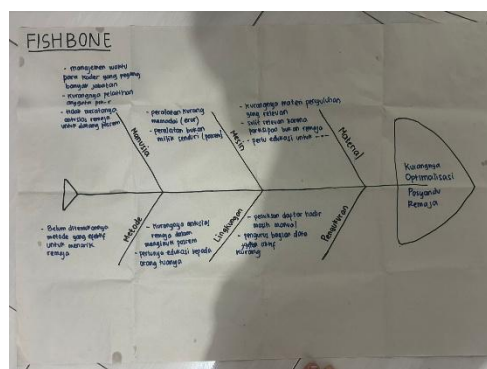 FISHBONE
- manajemen waktu
para kader yang pegang
banyak jabatan
- kurangnya pelatihan
anggota
- tidak meratanya
antusias remaja
untuk datang posrem
Manusia
- peralatan kurang
memadai (eror)
- peralatan bukan
milik sendiri (posrem)
Mesin
- kurangnya materi penyuluhan
yang relevan
- sulit relevan karena
partisipan bukan remaja
- perlu edukasi untuk ---
Material
Kurangnya
Optimalisasi
Posyandu
Remaja
- Belum ditemukannya
metode yang efektif
untuk menarik
remaja
Metode
- Kurangnya antusias
remaja dalam
mengikuti posrem
- perlunya edukasi kepada
orang tuanya
Lingkungan
- penulisan daftar hadir
masih manual
- pengurus bagian data
kurang
Pengukuran